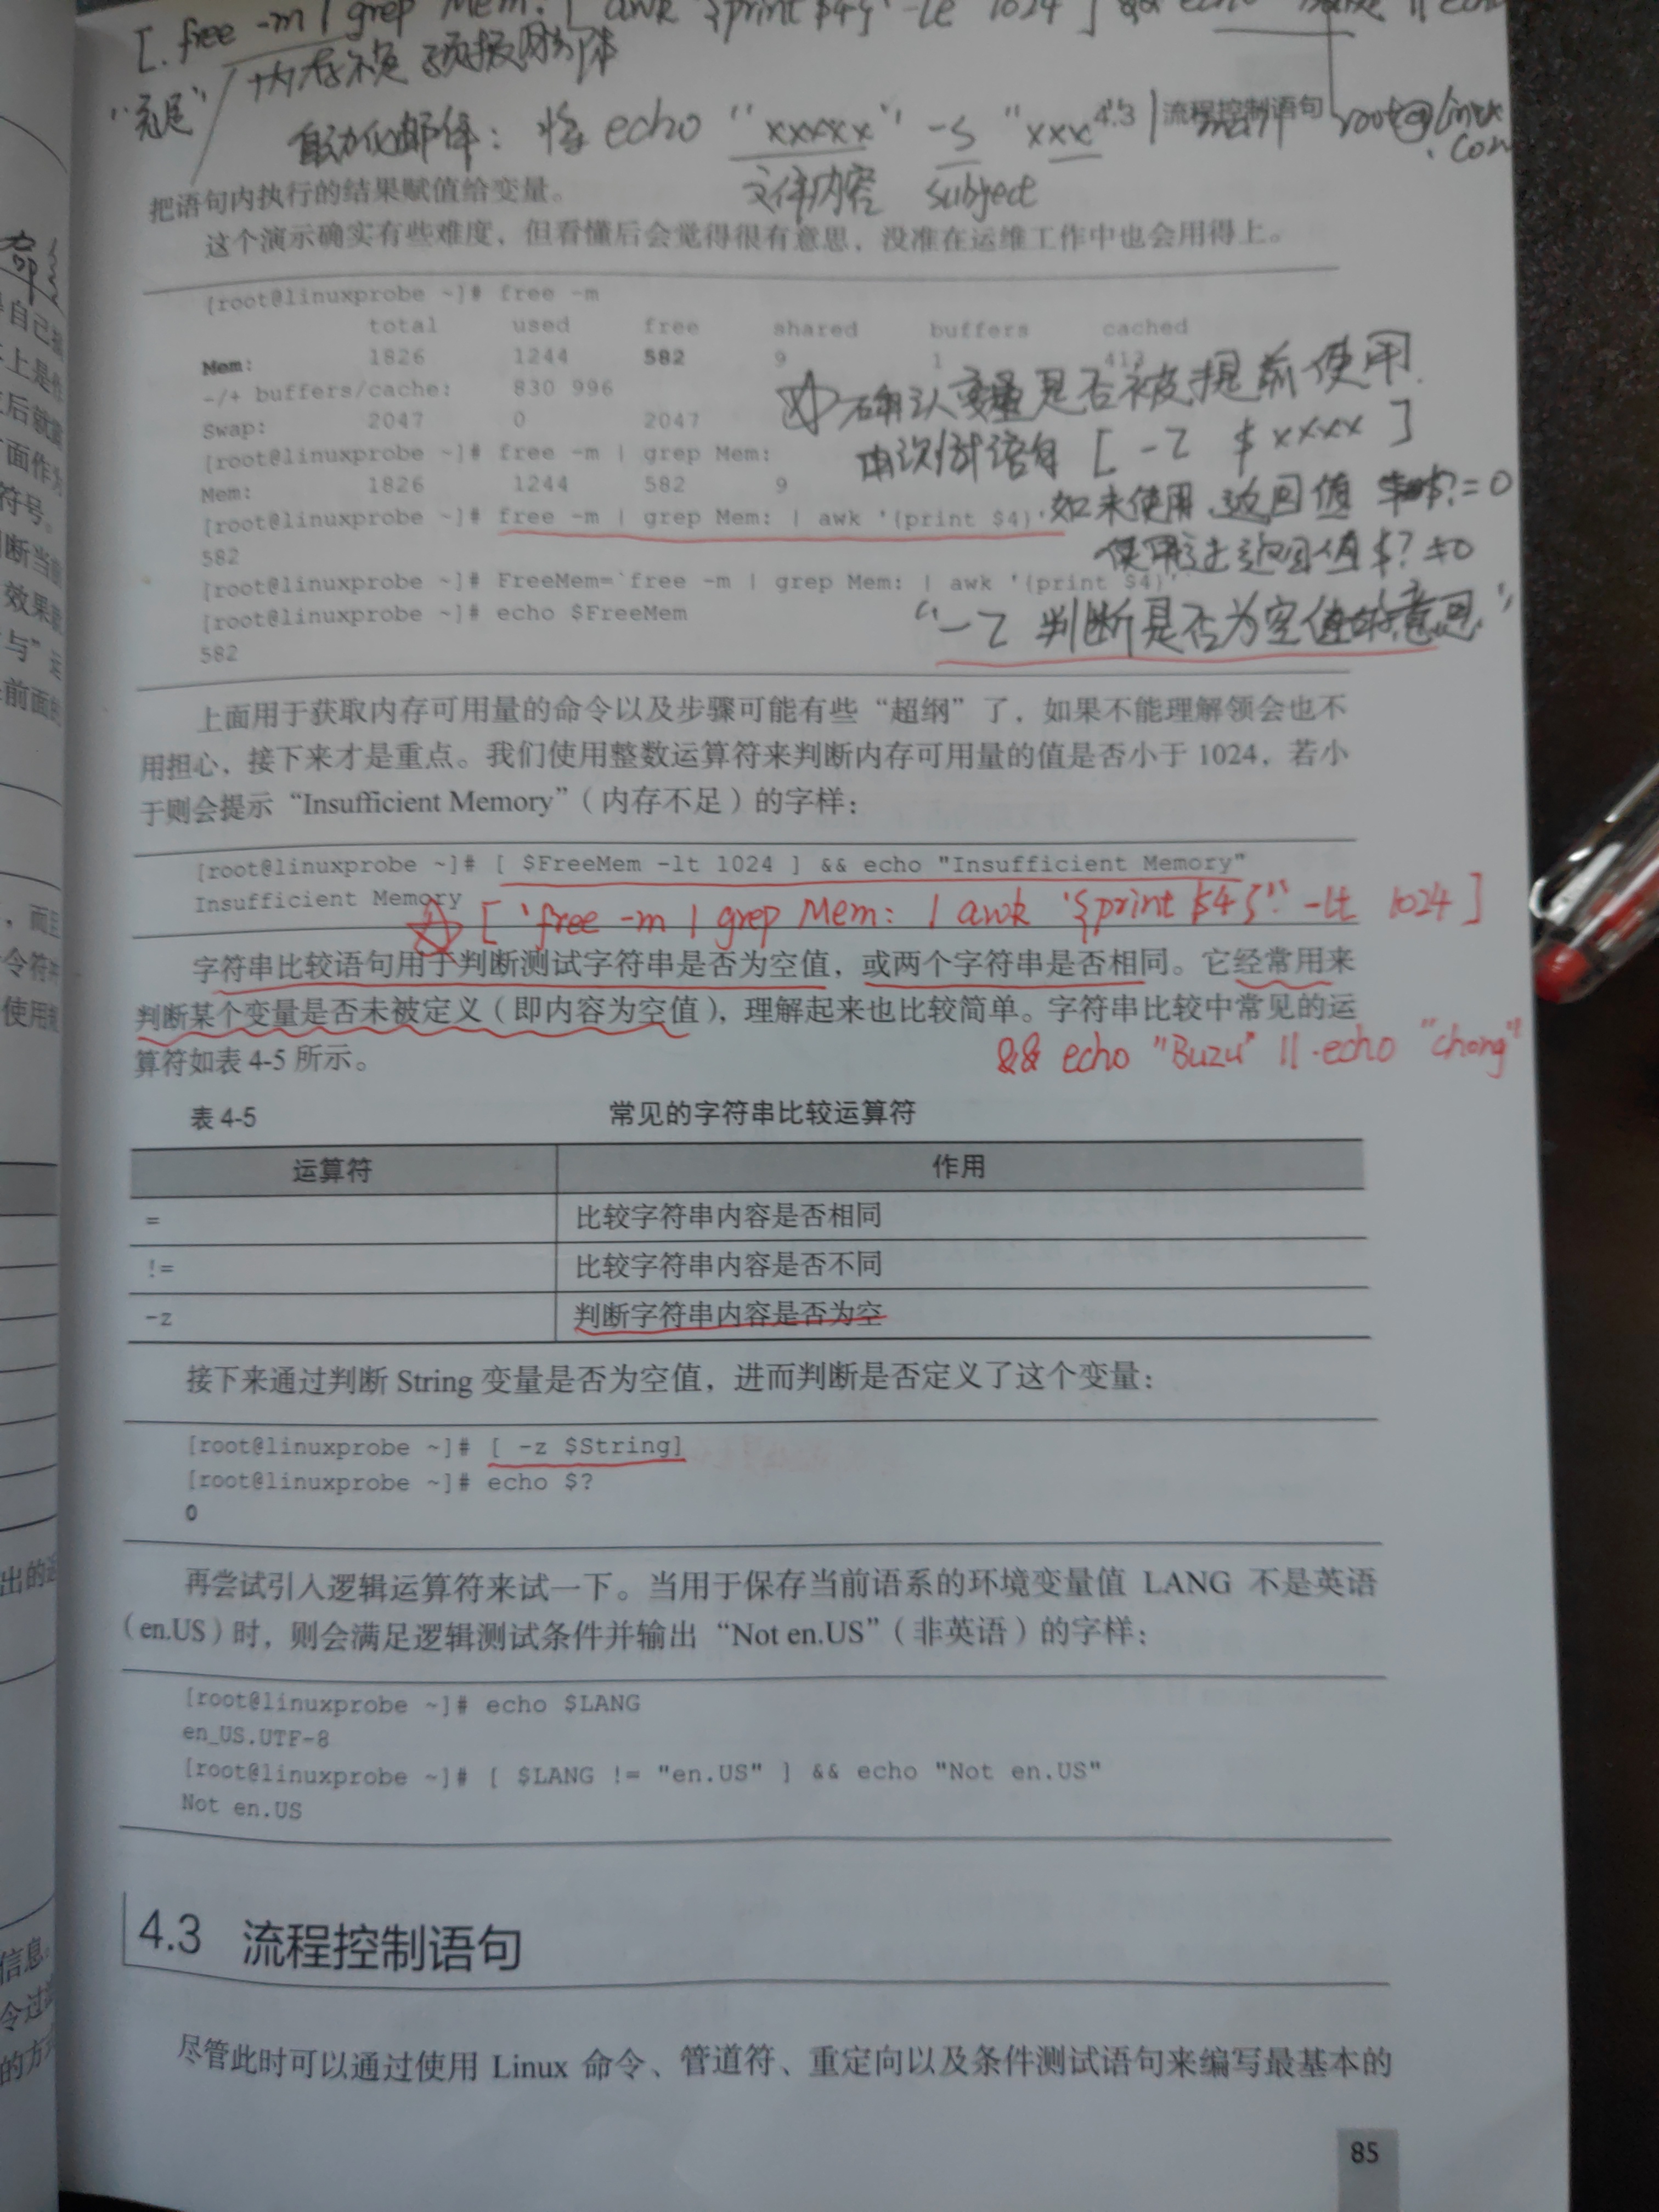 [ `free -m | grep Mem: | awk '{print $4}'` -le 1024 ] && echo || echo
"充足"
内存不足
自动化邮件: 将 echo "xxxxx" -s "xxx" root@linux.com
文件内容 subject
4.3 流程控制语句
把语句内执行的结果赋值给变量。
这个演示确实有些难度，但看懂后会觉得很有意思，没准在运维工作中也会用得上。
[root@linuxprobe ~]# free -m
total used free shared buffers cached
Mem: 1826 1244 582 9 1 413
-/+ buffers/cache: 830 996
Swap: 2047 0 2047
[root@linuxprobe ~]# free -m | grep Mem:
Mem: 1826 1244 582 9
[root@linuxprobe ~]# free -m | grep Mem: | awk '{print $4}'
582
[root@linuxprobe ~]# FreeMem=`free -m | grep Mem: | awk '{print $4}'`
[root@linuxprobe ~]# echo $FreeMem
582
☆ 确认变量是否被提前使用.
[ -z $xxxx ]
如未使用, 返回值 $?=0
使用过 返回值 $?≠0
"-z 判断是否为空值的意思"
上面用于获取内存可用量的命令以及步骤可能有些“超纲”了，如果不能理解领会也不
用担心，接下来才是重点。我们使用整数运算符来判断内存可用量的值是否小于 1024，若小
于则会提示“Insufficient Memory”（内存不足）的字样：
[root@linuxprobe ~]# [ $FreeMem -lt 1024 ] && echo "Insufficient Memory"
Insufficient Memory
☆ [ `free -m | grep Mem: | awk '{print $4}'` -lt 1024 ]
字符串比较语句用于判断测试字符串是否为空值，或两个字符串是否相同。它经常用来
判断某个变量是否未被定义（即内容为空值），理解起来也比较简单。字符串比较中常见的运
算符如表 4-5 所示。
&& echo "Buzu" || echo "chong"
表 4-5 常见的字符串比较运算符
运算符 作用
= 比较字符串内容是否相同
!= 比较字符串内容是否不同
-z 判断字符串内容是否为空
接下来通过判断 String 变量是否为空值，进而判断是否定义了这个变量：
[root@linuxprobe ~]# [ -z $String]
[root@linuxprobe ~]# echo $?
0
再尝试引入逻辑运算符来试一下。当用于保存当前语系的环境变量值 LANG 不是英语
（en.US）时，则会满足逻辑测试条件并输出“Not en.US”（非英语）的字样：
[root@linuxprobe ~]# echo $LANG
en_US.UTF-8
[root@linuxprobe ~]# [ $LANG != "en.US" ] && echo "Not en.US"
Not en.US
4.3 流程控制语句
尽管此时可以通过使用 Linux 命令、管道符、重定向以及条件测试语句来编写最基本的
85